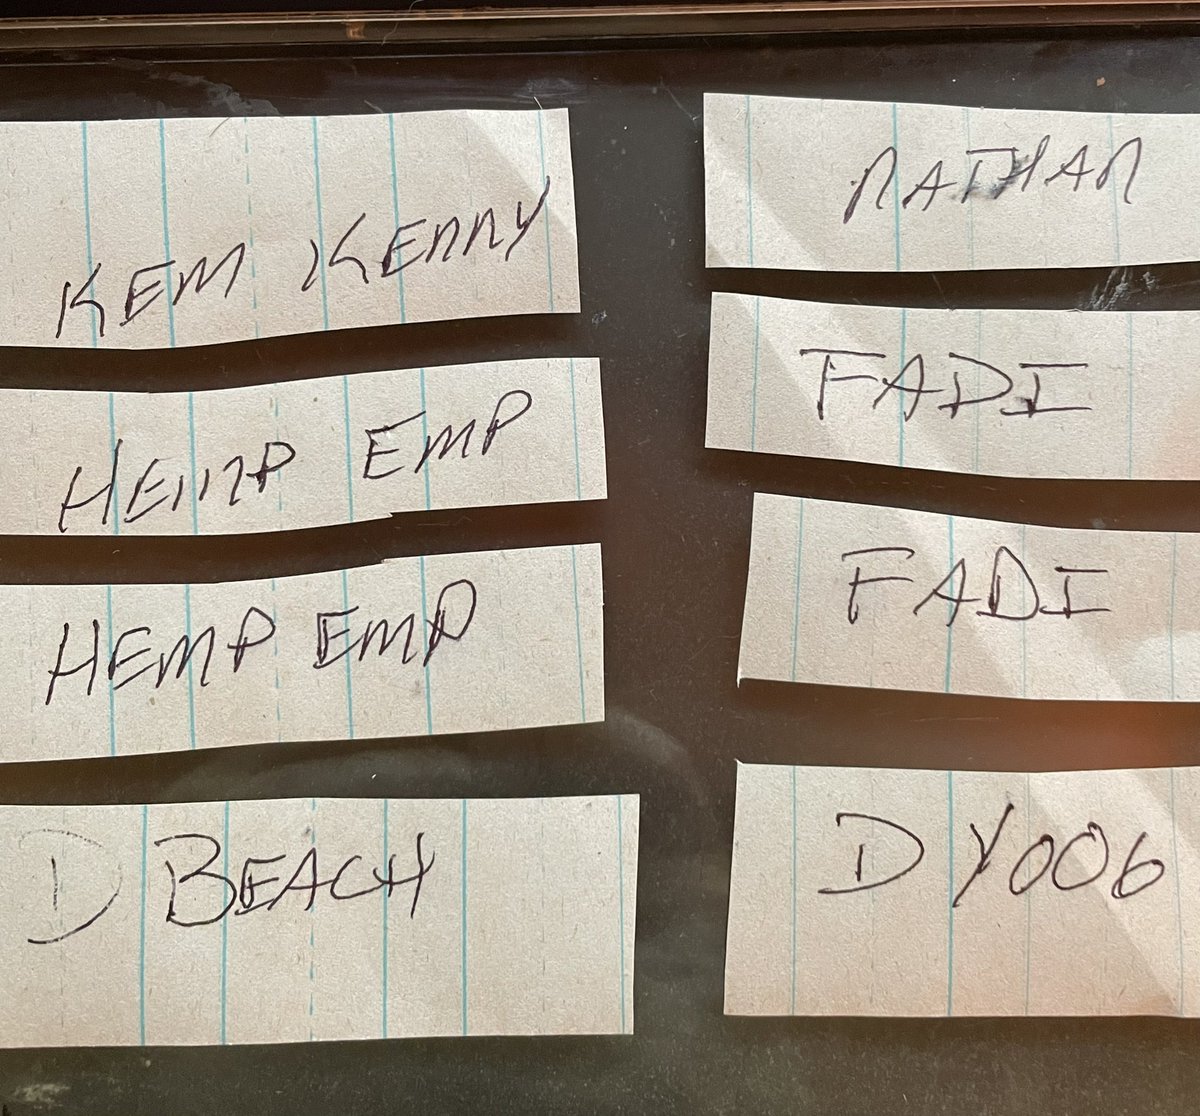 KEM KENNY
HEMP EMP
HEMP EMP
D BEACH
NATHAN
FADI
FADI
D YOO6